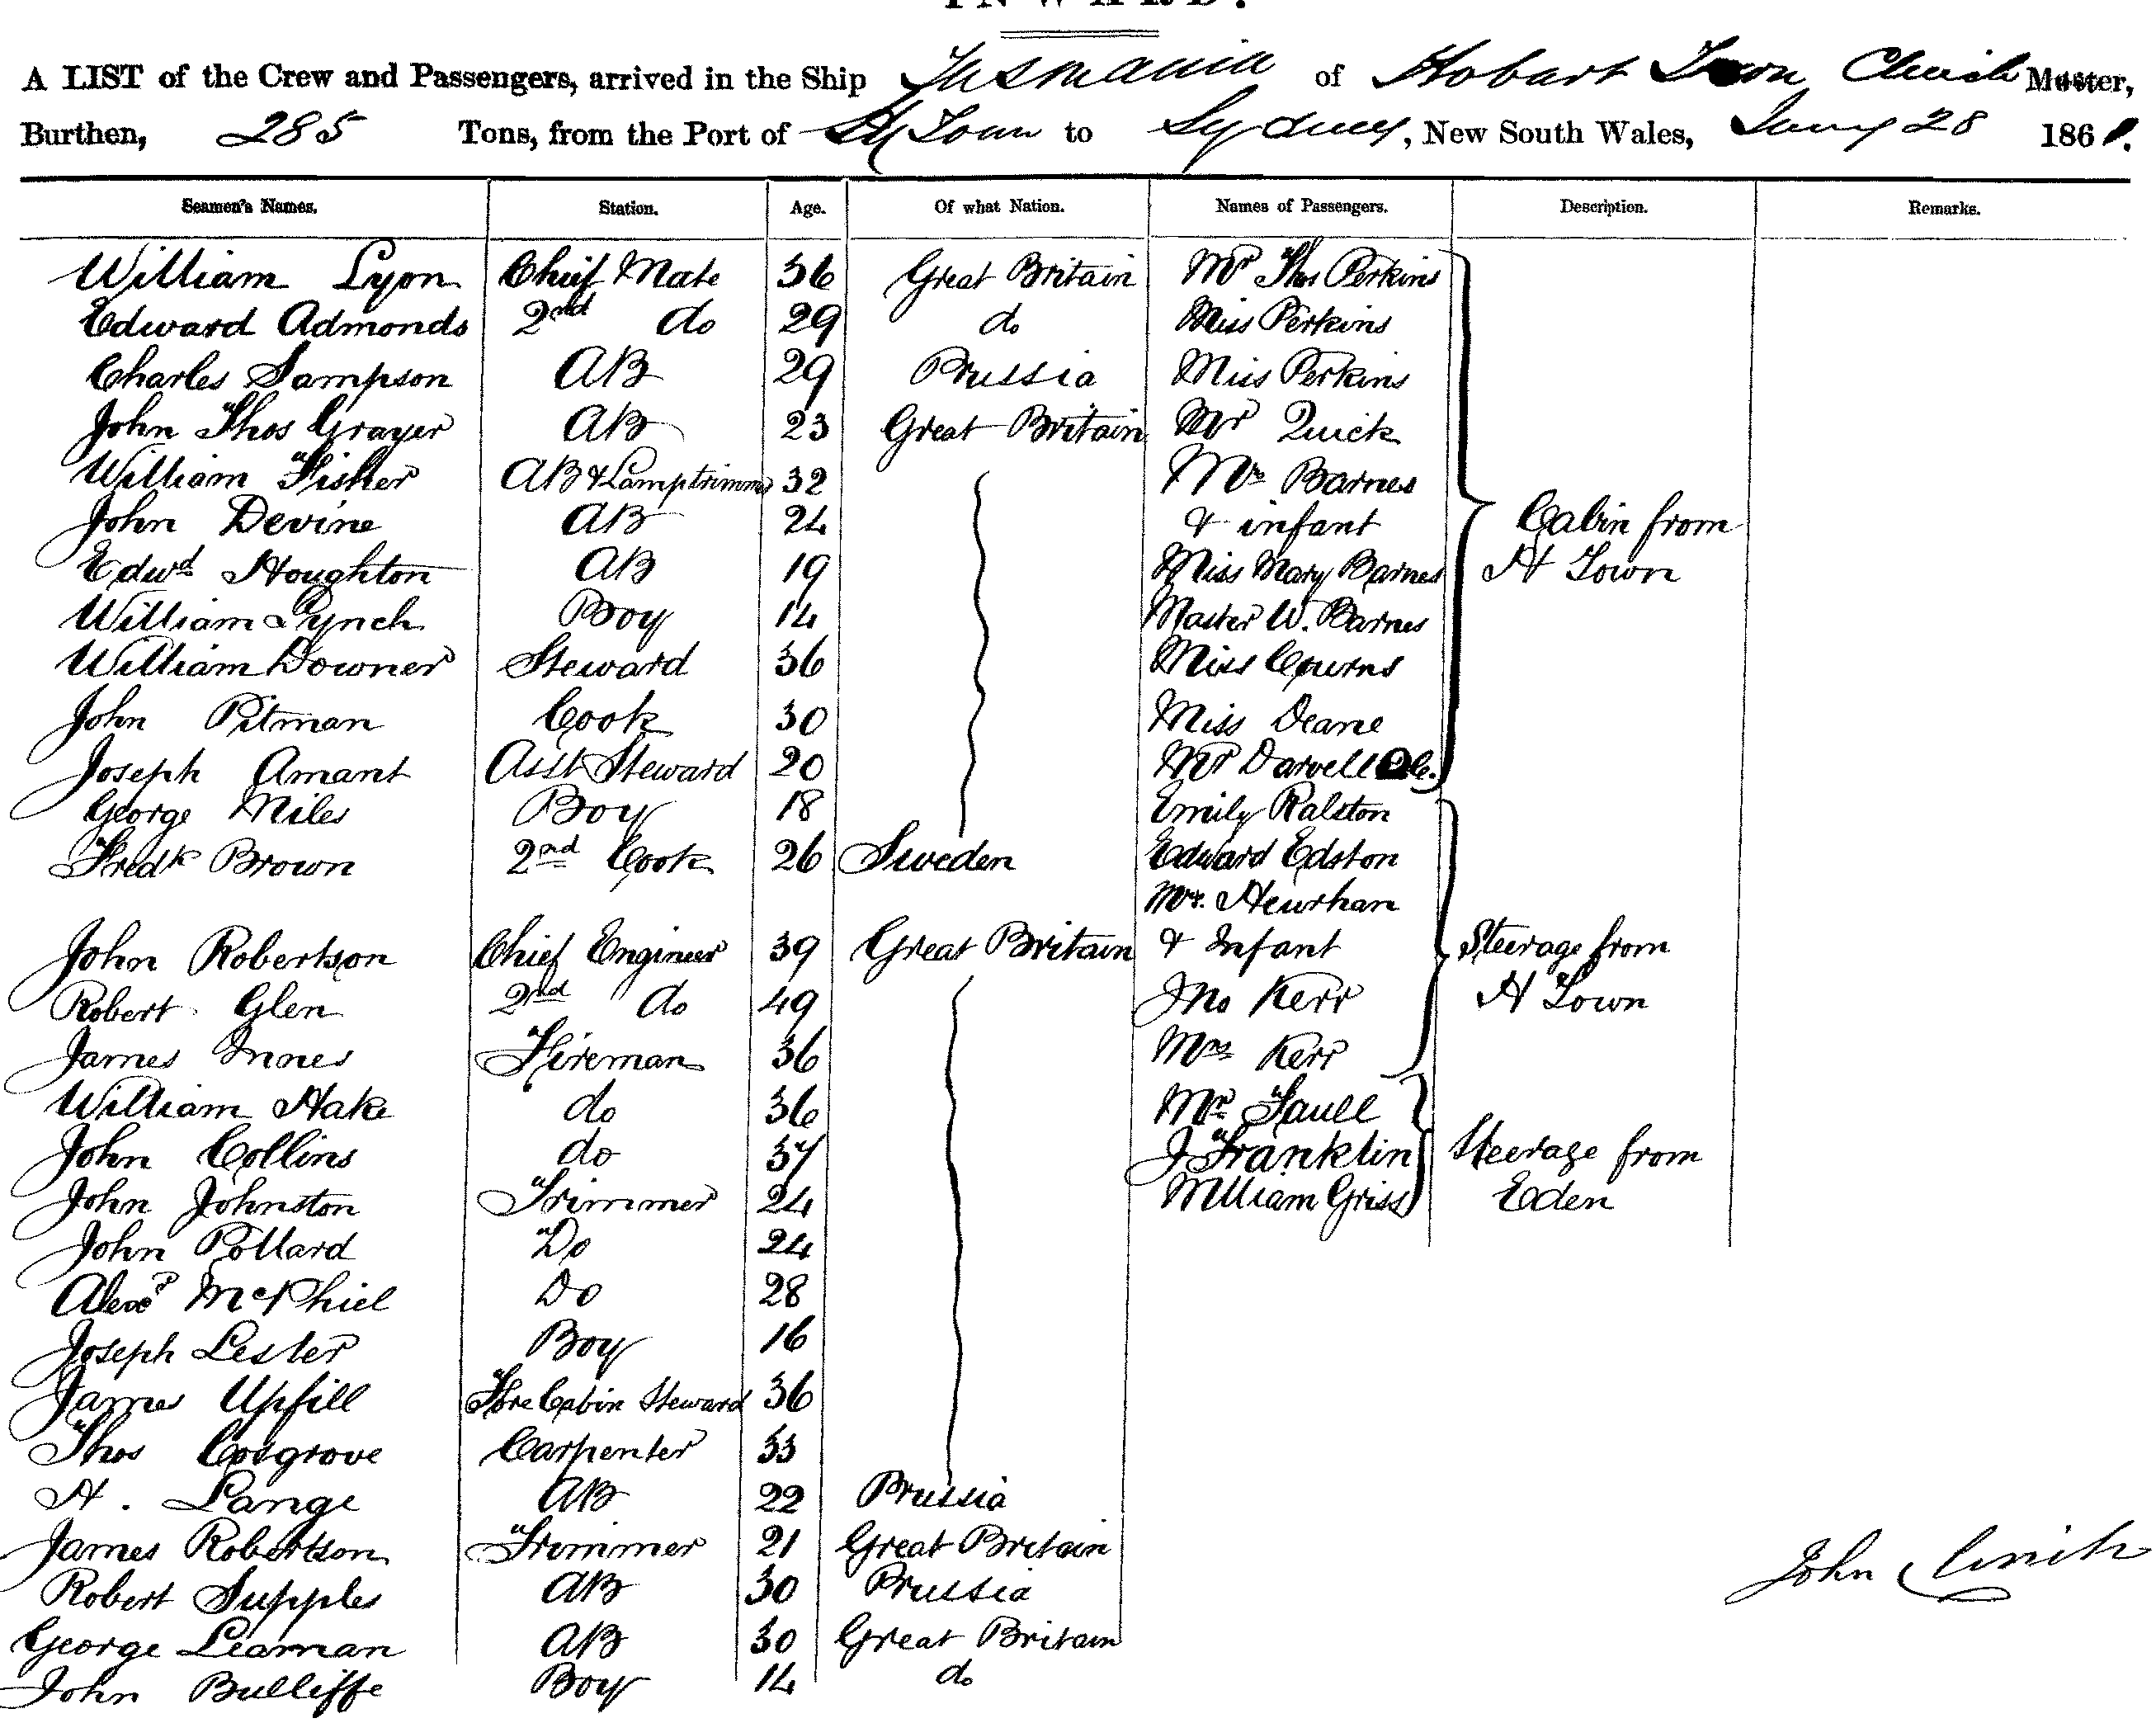 INWARD.
A LIST of the Crew and Passengers, arrived in the Ship Tasmania of Hobart Town, Clinch Master,
Burthen, 285 Tons, from the Port of H Town to Sydney, New South Wales, Jany 28 186
Seamen's Names. Station. Age. Of what Nation. Names of Passengers. Description. Remarks.
William Lyon Chief Mate 36 Great Britain Mr Thos Perkins
Edward Admonds 2nd do 29 do Miss Perkins
Charles Sampson AB 29 Prussia Miss Perkins
John Thos Grayer AB 23 Great Britain Mr Quick
William Fisher AB & Lamptrimmer 32 Mrs Barnes
John Devine AB 24 & infant Cabin from
Edwd Houghton AB 19 Miss Mary Barnes H Town
William Lynch Boy 14 Master W. Barnes
William Downer Steward 36 Miss
John Pitman Cook 30 Miss Deane
Joseph Amant Asst Steward 20 Mr Darvell
George Miles Boy 18 Emily Ralston
Fredk Brown 2nd Cook 26 Sweden Edward Edston
Mrs. Heurhan
John Robertson Chief Engineer 39 Great Britain & Infant Steerage from
Robert Glen 2nd do 49 Jno Kerr H Town
James Innes Fireman 36 Mrs Kerr
William Hake do 36 Mr
John Collins do 37 J Franklin Steerage from
John Johnston Trimmer 24 William Griss Eden
John Pollard Do 24
Alexr McPhiel Do 28
Joseph Lester Boy 16
James Upfill Fore Cabin Steward 36
Thos Cosgrove Carpenter 33
H. Lange AB 22 Prussia
James Robertson Trimmer 21 Great Britain
Robert Supples AB 30 Prussia
John Clinch
George Leaman AB 30 Great Britain
John Bulliffe Boy 14 do